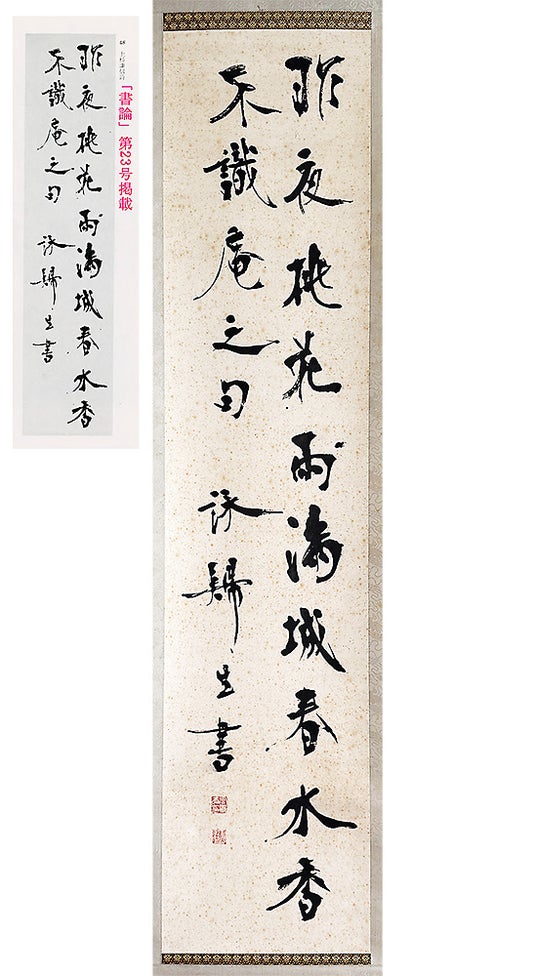 昨夜桃花雨満城春水香
不識庵之句　詠歸生書
「書論」第23号掲載
昨夜桃花雨満城春水香
不識庵之句　詠歸生書